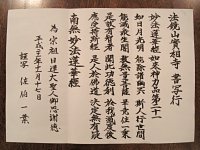 法鏡山實相寺 書写行
妙法蓮華経如来神力品第二十一
如日月光明 能除諸幽冥 斯人行世間
能滅衆生闇 教無量菩薩 畢竟住一乗
是故有智者 聞此功徳利 於我滅度後
應受持斯経 是人於佛道 決定無有疑
南無妙法蓮華経
為 宗祖日蓮大聖人御謝徳
平成二十年十一月十七日
謹写 佐伯一葉